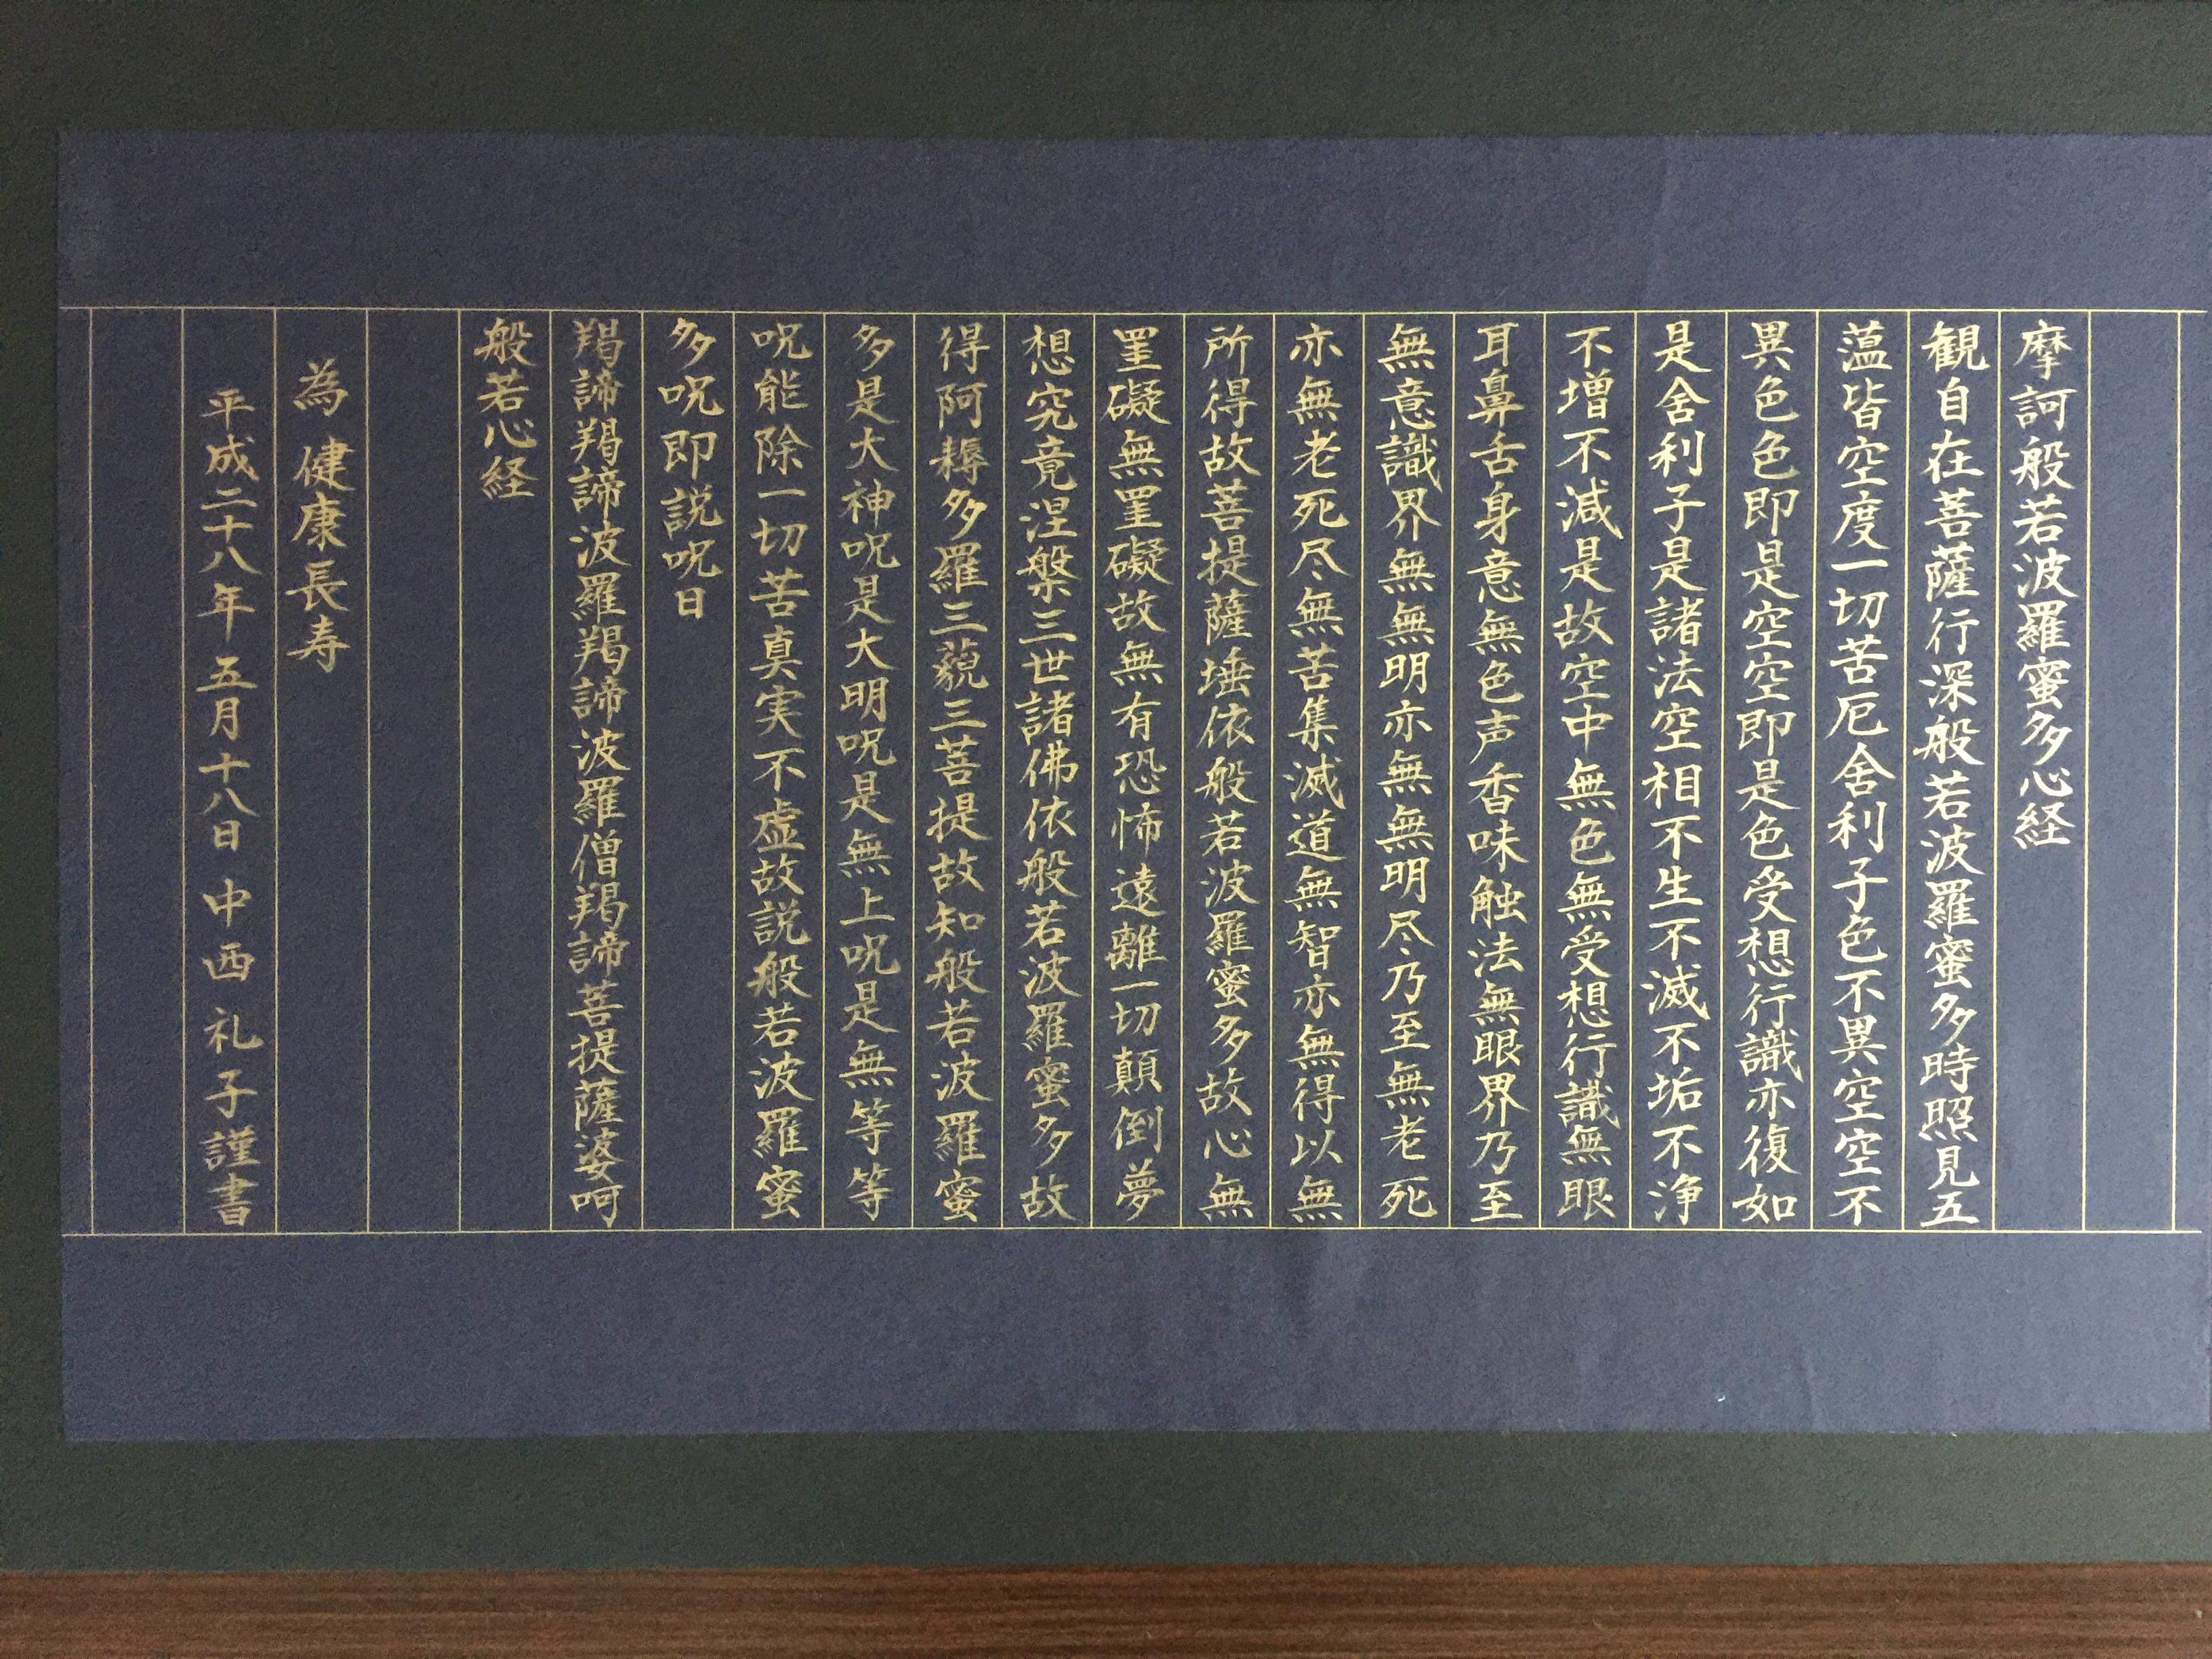 摩訶般若波羅蜜多心経
観自在菩薩行深般若波羅蜜多時照見五
薀皆空度一切苦厄舍利子色不異空空不
異色色即是空空即是色受想行識亦復如
是舍利子是諸法空相不生不滅不垢不浄
不増不減是故空中無色無受想行識無眼
耳鼻舌身意無色声香味触法無眼界乃至
無意識界無無明亦無無明尽乃至無老死
亦無老死尽無苦集滅道無智亦無得以無
所得故菩提薩埵依般若波羅蜜多故心無
罣礙無罣礙故無有恐怖遠離一切顛倒夢
想究竟涅槃三世諸佛依般若波羅蜜多故
得阿耨多羅三藐三菩提故知般若波羅蜜
多是大神呪是大明呪是無上呪是無等等
呪能除一切苦真実不虚故説般若波羅蜜
多呪即説呪曰
羯諦羯諦波羅羯諦波羅僧羯諦菩提薩婆呵
般若心経
為健康長寿
平成二十八年五月十八日 中西礼子謹書